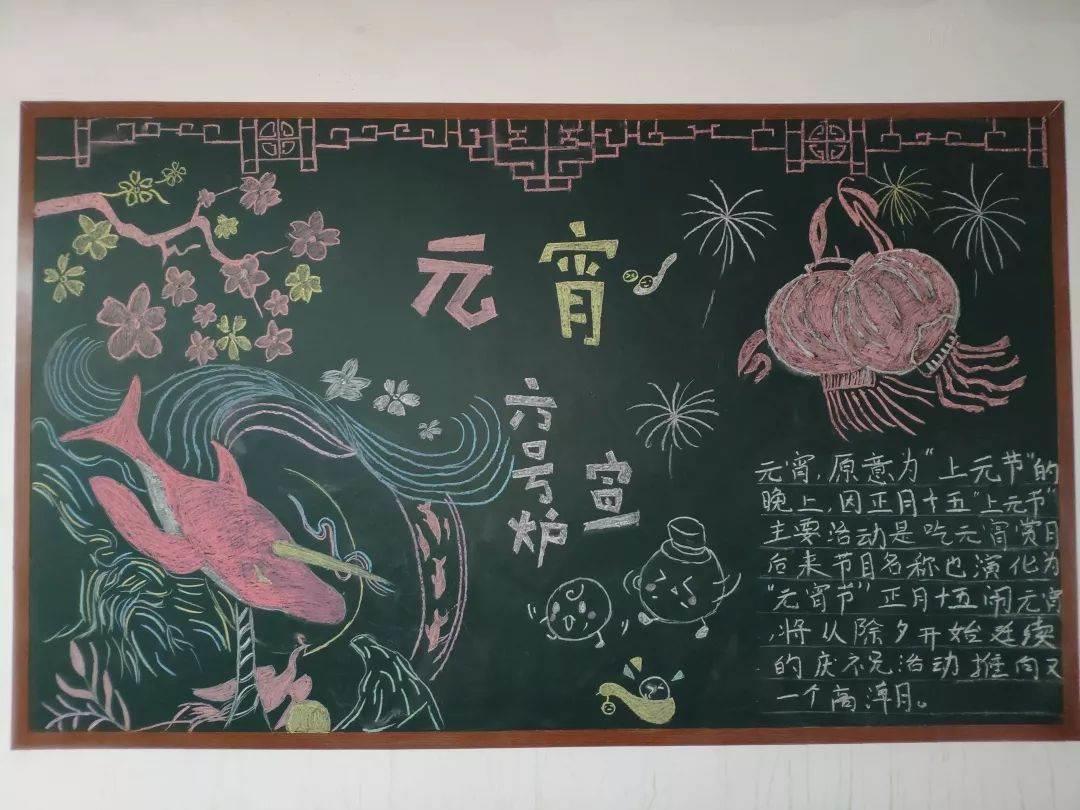 元宵
六号炉
宣
元宵,原意为“上元节”的
晚上,因正月十五“上元节”
主要活动是吃元宵赏月
后来节目名称也演化为
“元宵节”正月十五闹元宵
,将从除夕开始延续
的庆祝活动推向又
一个高潭月。